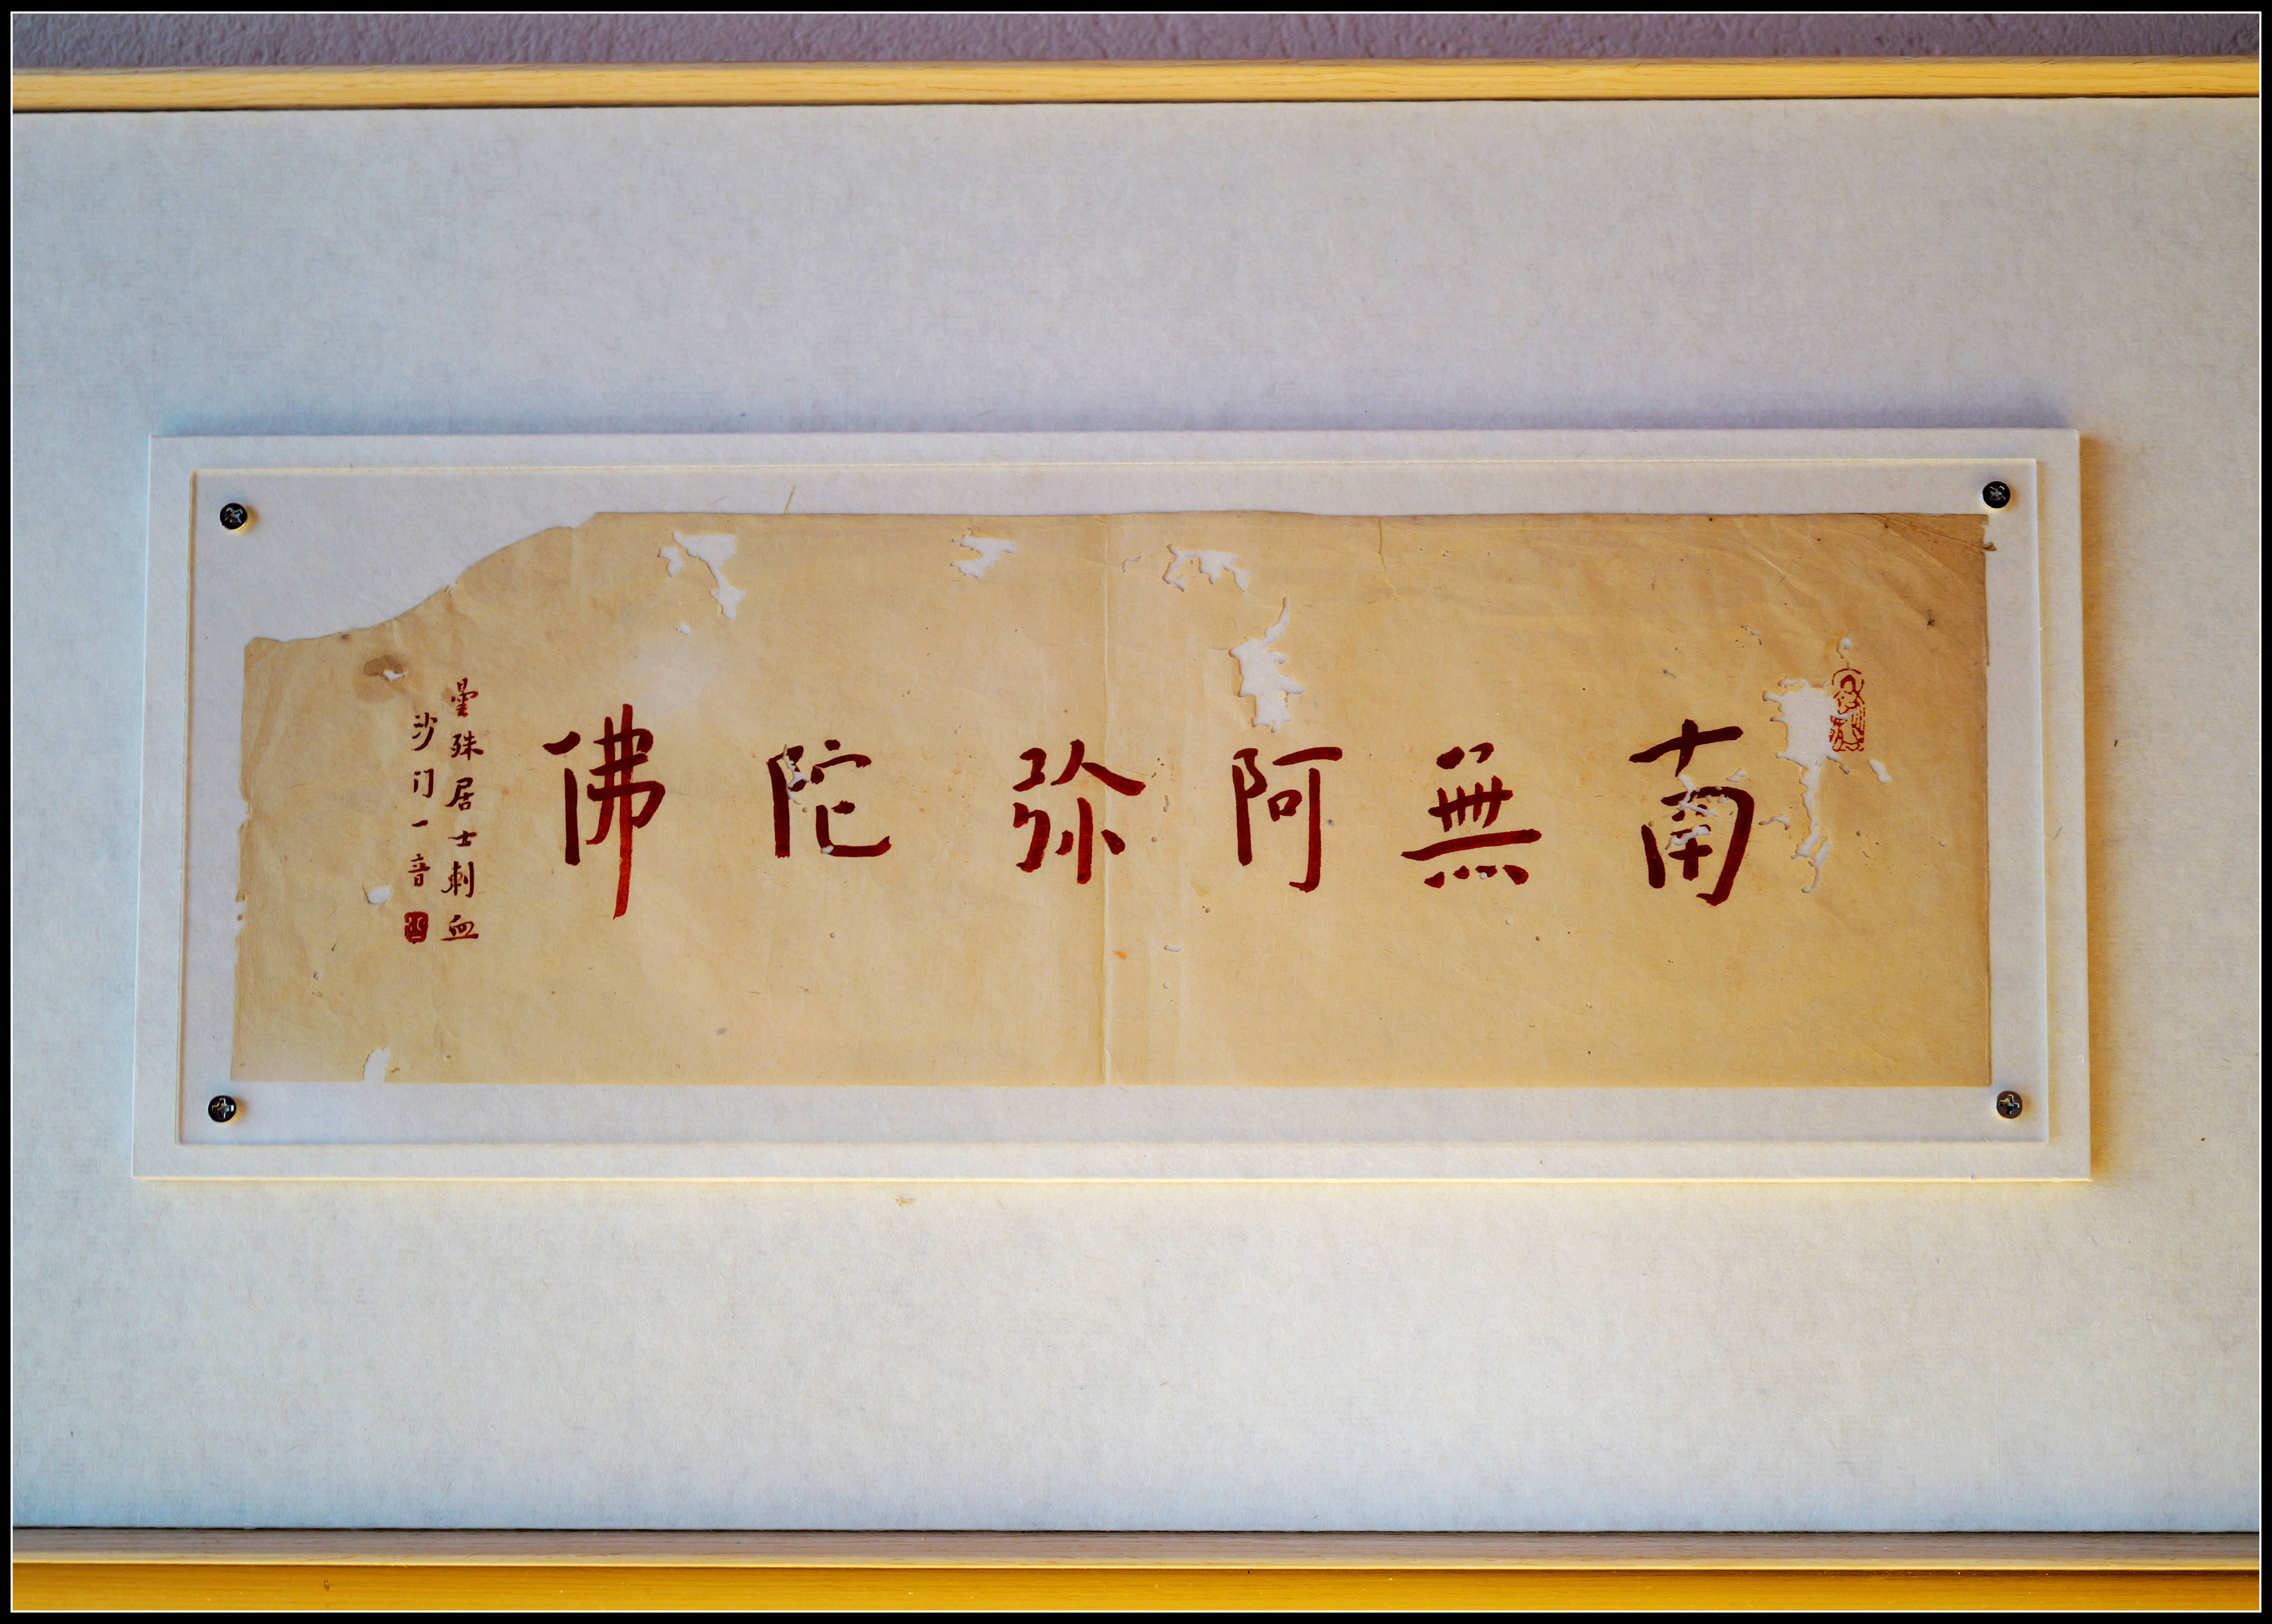 南無阿弥陀佛
殊居士刺血
沙门一音